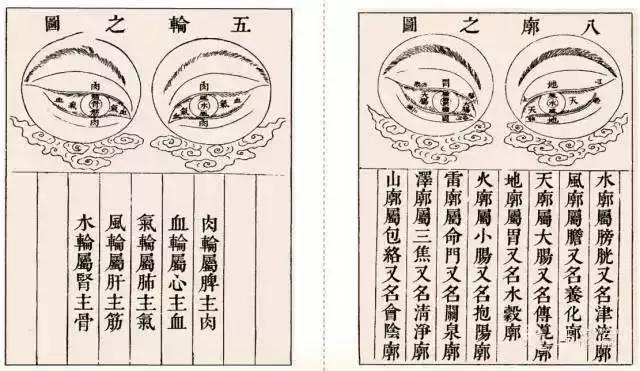 五輪之圖
肉
血
氣
水
氣
血
肉
肉
血
氣
氣
血
肉
肉輪屬脾主肉
血輪屬心主血
氣輪屬肺主氣
風輪屬肝主筋
水輪屬腎主骨
八廓之圖
地
天
水
天
地
胃
大腸
水廓屬膀胱又名津液廓
風廓屬膽又名養化廓
天廓屬大腸又名傳導廓
地廓屬胃又名水穀廓
火廓屬小腸又名抱陽廓
雷廓屬命門又名關泉廓
澤廓屬三焦又名清淨廓
山廓屬包絡又名會陰廓